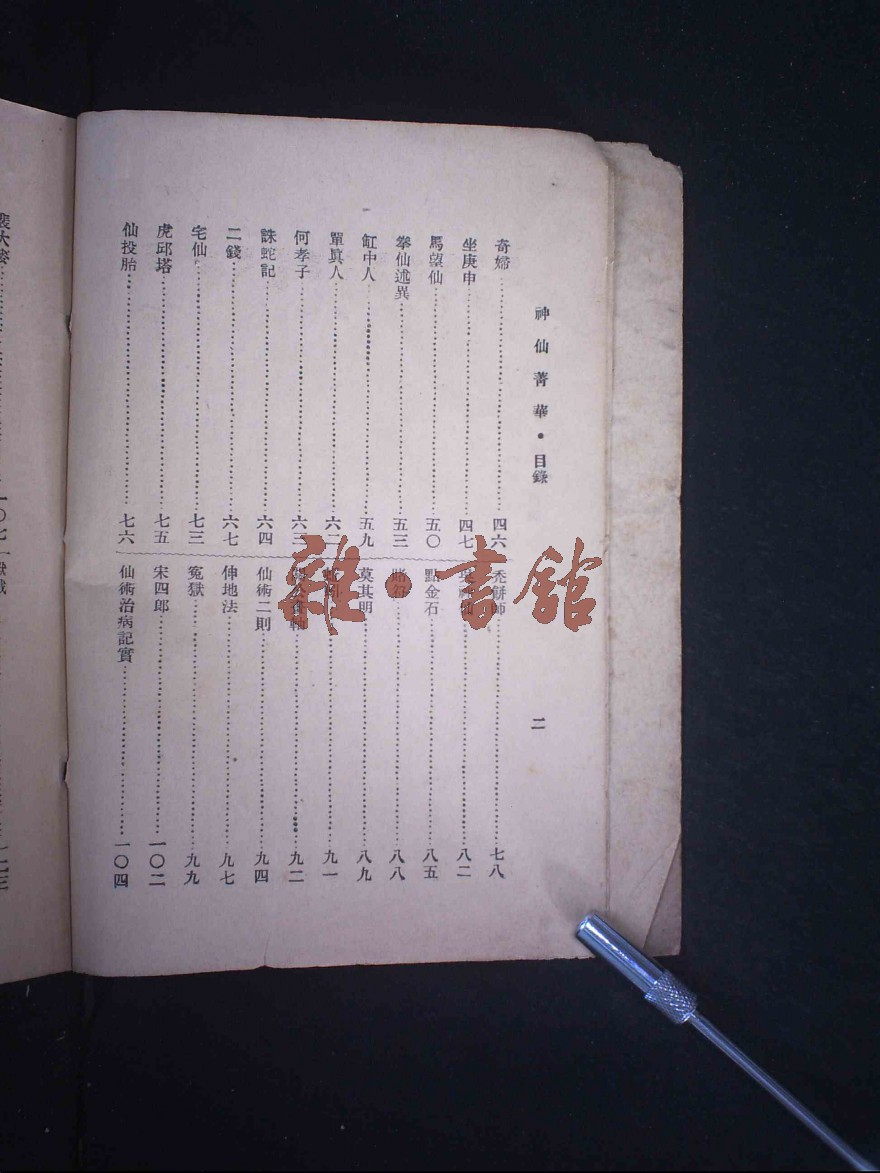 神仙菁華・目錄
二
奇婦……四六
坐庚申……四七
馬望仙……五〇
拳仙述異……五三
缸中人……五九
單眞人……六二
何孝子……六三
誅蛇記……六四
二錢……六七
宅仙……七三
虎邱塔……七五
仙投胎……七六
禿餅師……七八
八二
點金石……八五
八八
莫其明……八九
九一
九二
仙術二則……九四
伸地法……九七
冤獄……九九
宋四郎……一〇二
仙術治病記實……一〇四
雜・書館